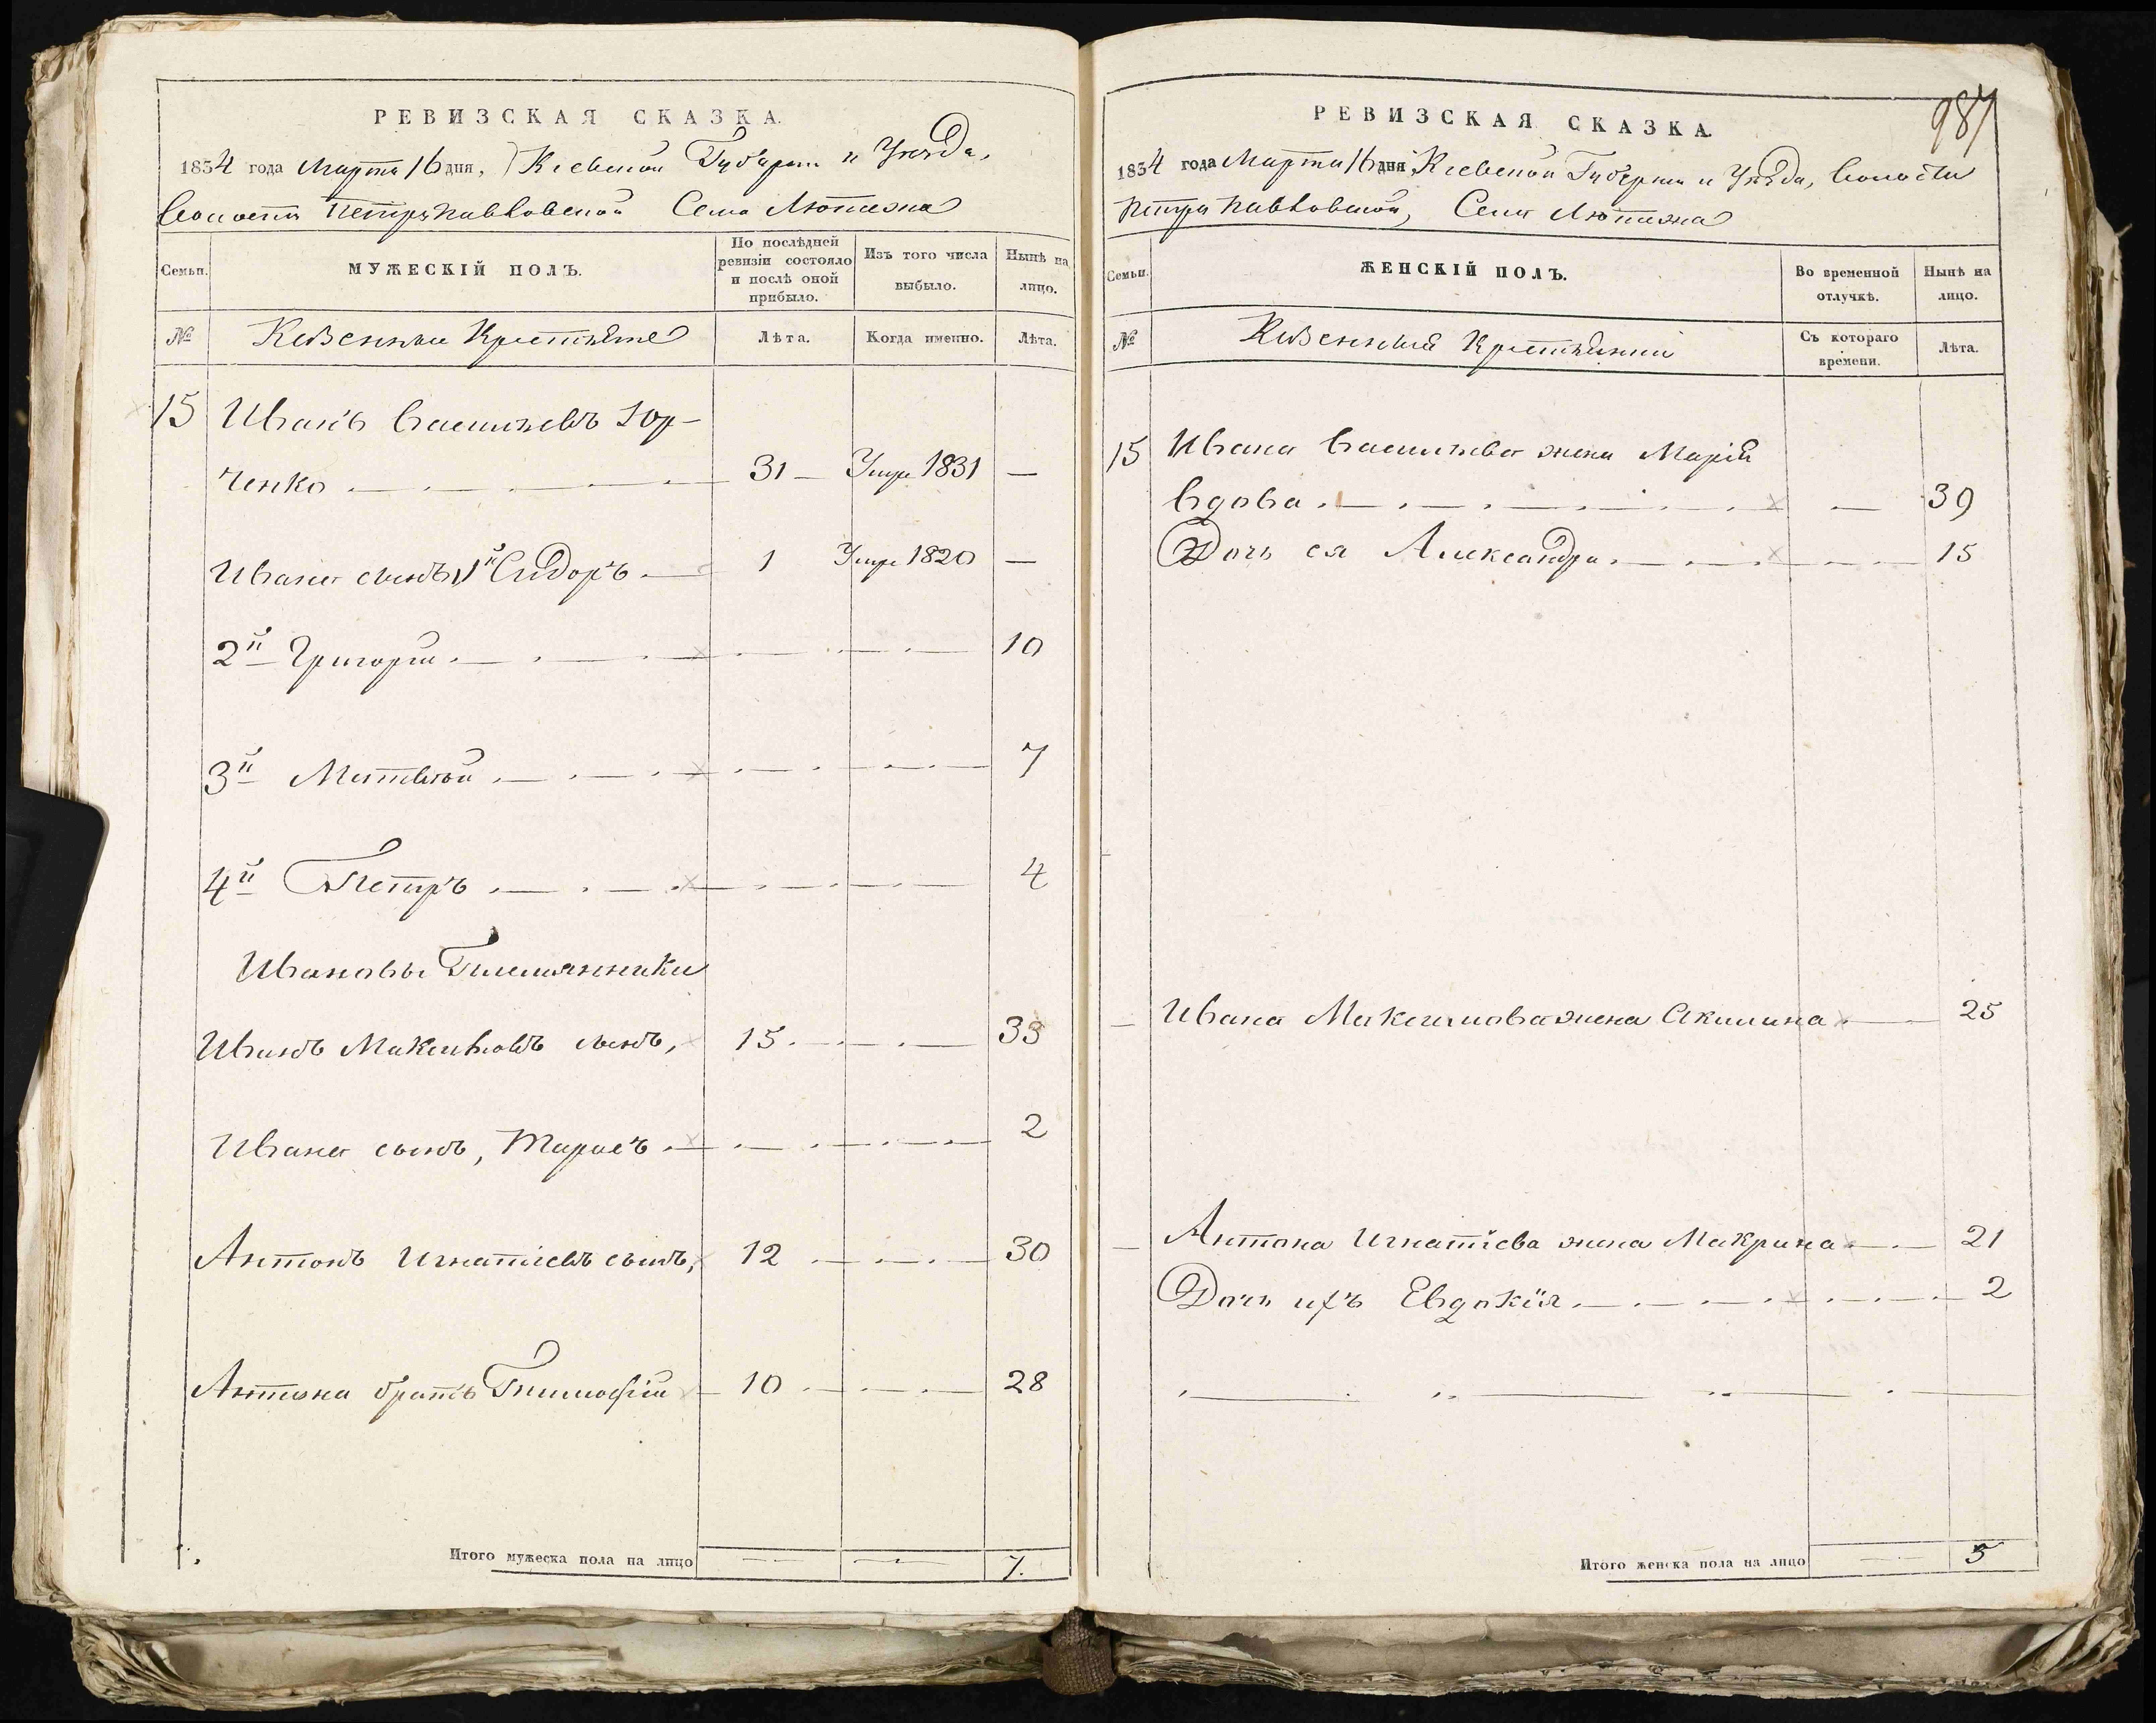 РЕВИЗСКАЯ СКАЗКА.
1834 года Марта 16 дня, Кіевской Губерніи и Уѣзда,
Волости Петропавловской Села Лютежа
Семьи.
МУЖЕСКІЙ ПОЛЪ.
По послѣдней ревизіи состояло и послѣ оной прибыло.
Изъ того числа выбыло.
Нынѣ на лицо.
№
Казенные Крестьяне
Лѣта.
Когда именно.
Лѣта.
15 Иванъ Васильевъ Юр-
ченко 31 Умре 1831 —
Ивана сынъ 1й Сидоръ 1 Умре 1820 —
2й Григорій 10
3й Матвѣй 7
4й Петръ 4
Ивановы Племянники
Иванъ Максимовъ сынъ, 15 33
Ивана сынъ, Тарасъ 2
Антонъ Игнатіевъ сынъ, 12 30
Антона братъ Тимофій 10 28
Итого мужеска пола на лицо — — 7.
987
РЕВИЗСКАЯ СКАЗКА.
1834 года Марта 16 дня Кіевской Губерніи и Уѣзда, Волости
Петропавловской, Села Лютежа
Семьи.
ЖЕНСКІЙ ПОЛЪ.
Во временной отлучкѣ.
Нынѣ на лицо.
№
Казенныя Крестьянки
Съ котораго времени.
Лѣта.
15 Ивана Васильева жена Марія
Вдова — 39
Дочь ея Александра 15
— Ивана Максимова жена Акилина 25
— Антона Игнатіева жена Макрина 21
Дочь ихъ Евдокія 2
Итого женска пола на лицо — 5